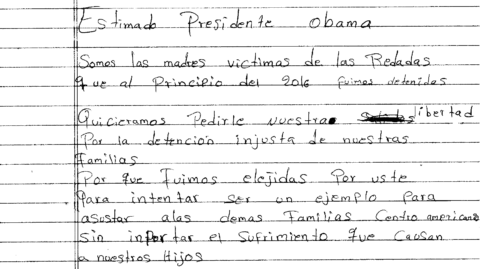 Estimado Presidente Obama
Somos las madres victimas de las Redadas
que al Principio del 2016 fuimos detenidas
Quicieramos Pedirle nuestra libertad
Por la detencion injusta de nuestras
familias
Por que fuimos elejidas Por uste
Para intentar ser un ejemplo Para
asustar alas demas Familias Centro american
Sin inportar el Sufrimiento que Causan
a nuestros Hijos